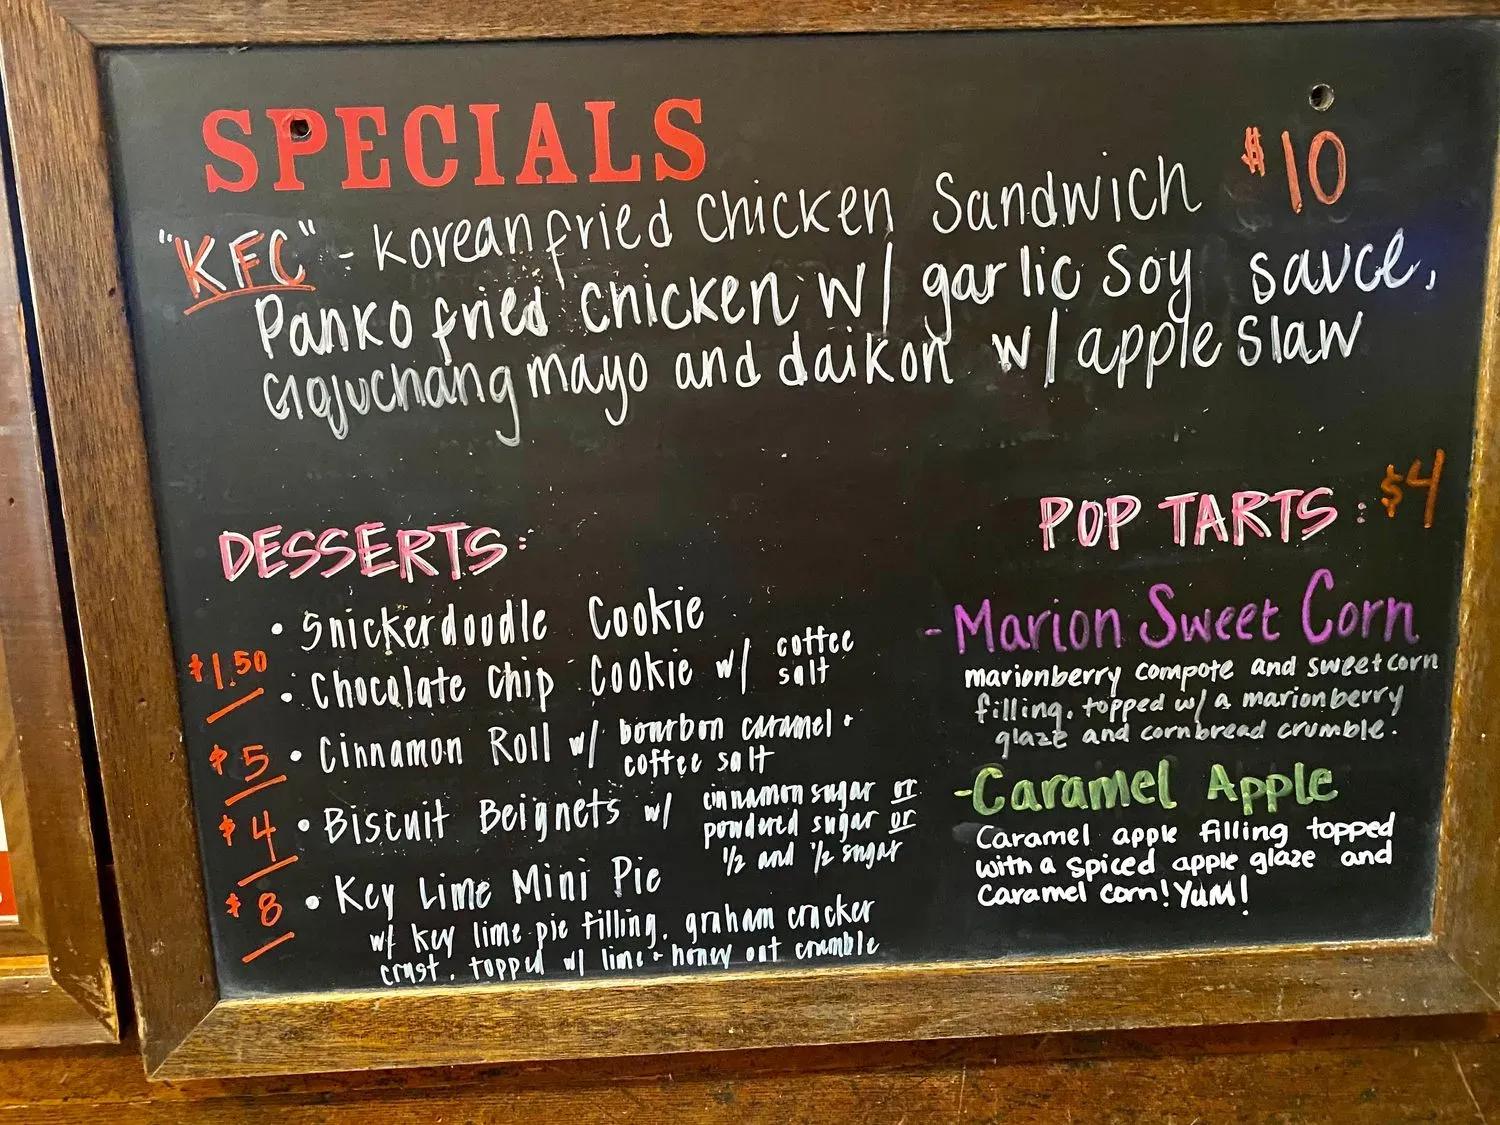 SPECIALS
"KFC" - Korean fried chicken Sandwich $10
Panko fried chicken w/ garlic soy sauce,
Gojuchang mayo and daikon w/ apple slaw
DESSERTS:
• Snickerdoodle Cookie
$1.50
• Chocolate Chip Cookie w/ coffee salt
$5 • Cinnamon Roll w/ bourbon caramel + coffee salt
$4 • Biscuit Beignets w/ cinnamon sugar or
powdered sugar or
1/2 and 1/2 sugar
$8 • Key Lime Mini Pie
w/ key lime pie filling, graham cracker
crust, topped w/ lime + honey oat crumble
POP TARTS: $4
- Marion Sweet Corn
marionberry compote and sweet corn
filling, topped w/ a marionberry
glaze and cornbread crumble.
- Caramel Apple
Caramel apple filling topped
with a spiced apple glaze and
caramel corn! YUM!